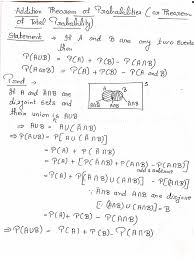 Addition Theorem of Probabilities (or Theorem
of Total Probability)
Statement - If A and B are any two events
then
P(A∪B) = P(A) + P(B) - P(A∩B)
P(A or B) = P(A) + P(B) - P(A and B)
Proof -
If A and A̅∩B are
disjoint sets and
their union is A∪B
⇒ A∪B = A∪(A̅∩B)
⇒ P(A∪B) = P[A∪(A̅∩B)]
= P(A) + P(A̅∩B)
= P(A) + [P(A̅∩B) + P(A∩B) - P(A∩B)]
add & subtract
= P(A) + P[(A̅∩B)∪(A∩B)] - P(A∩B)
∵ A∩B and A̅∩B are disjoint
[∵ (A̅∩B)∪(A∩B)] = B
= P(A) + P(B) - P(A∩B)
⇒ P(A∪B) = P(A) + P(B) - P(A∩B)